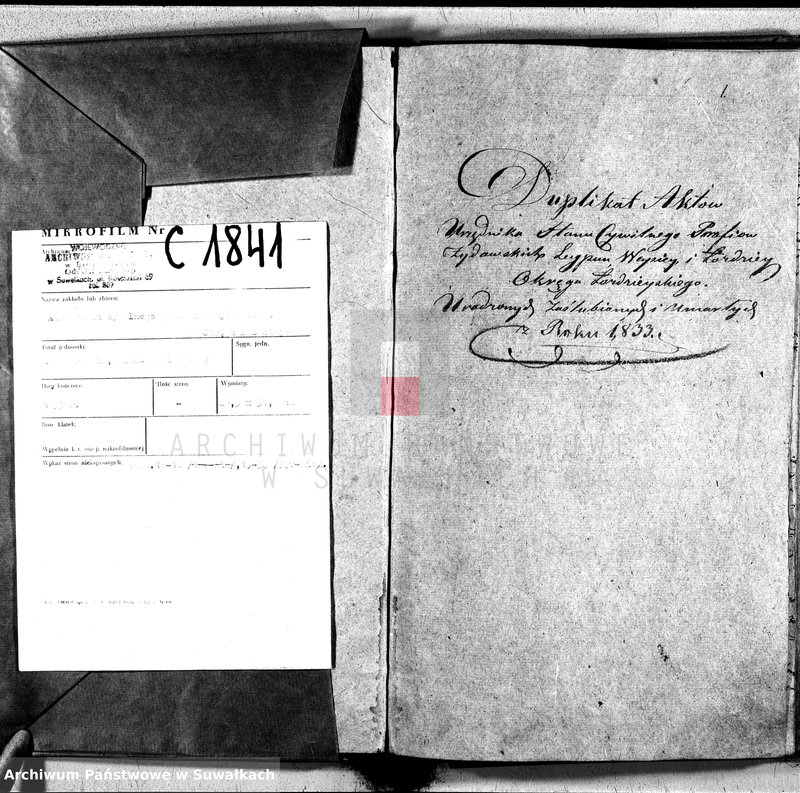 MIKROFILM Nr C 1841
WOJEWÓDZKIE
w Suwałkach, ul. Kościuszki 69
Nazwa zakładu lub zbioru:
Tytuł jednostki:
Sygn. jedn.
Daty końcowe:
Ilość stron:
Wymiary:
–
Ilość klatek:
Wypełnia k. t. stacji mikrofilmowej
Wykaz stron niezapisanych:
1
Duplikat Aktow
Urzędnika Stanu Cywilnego Parafiow
Żydowskich Leypun Wejsiey i Łordziey
Okręgu Łordzieyskiego.
Urodzonych Zaślubionych i umarłych
z Roku 1833.
ARCHIWUM PAŃSTWOWE
W SUWAŁKACH
Archiwum Państwowe w Suwałkach